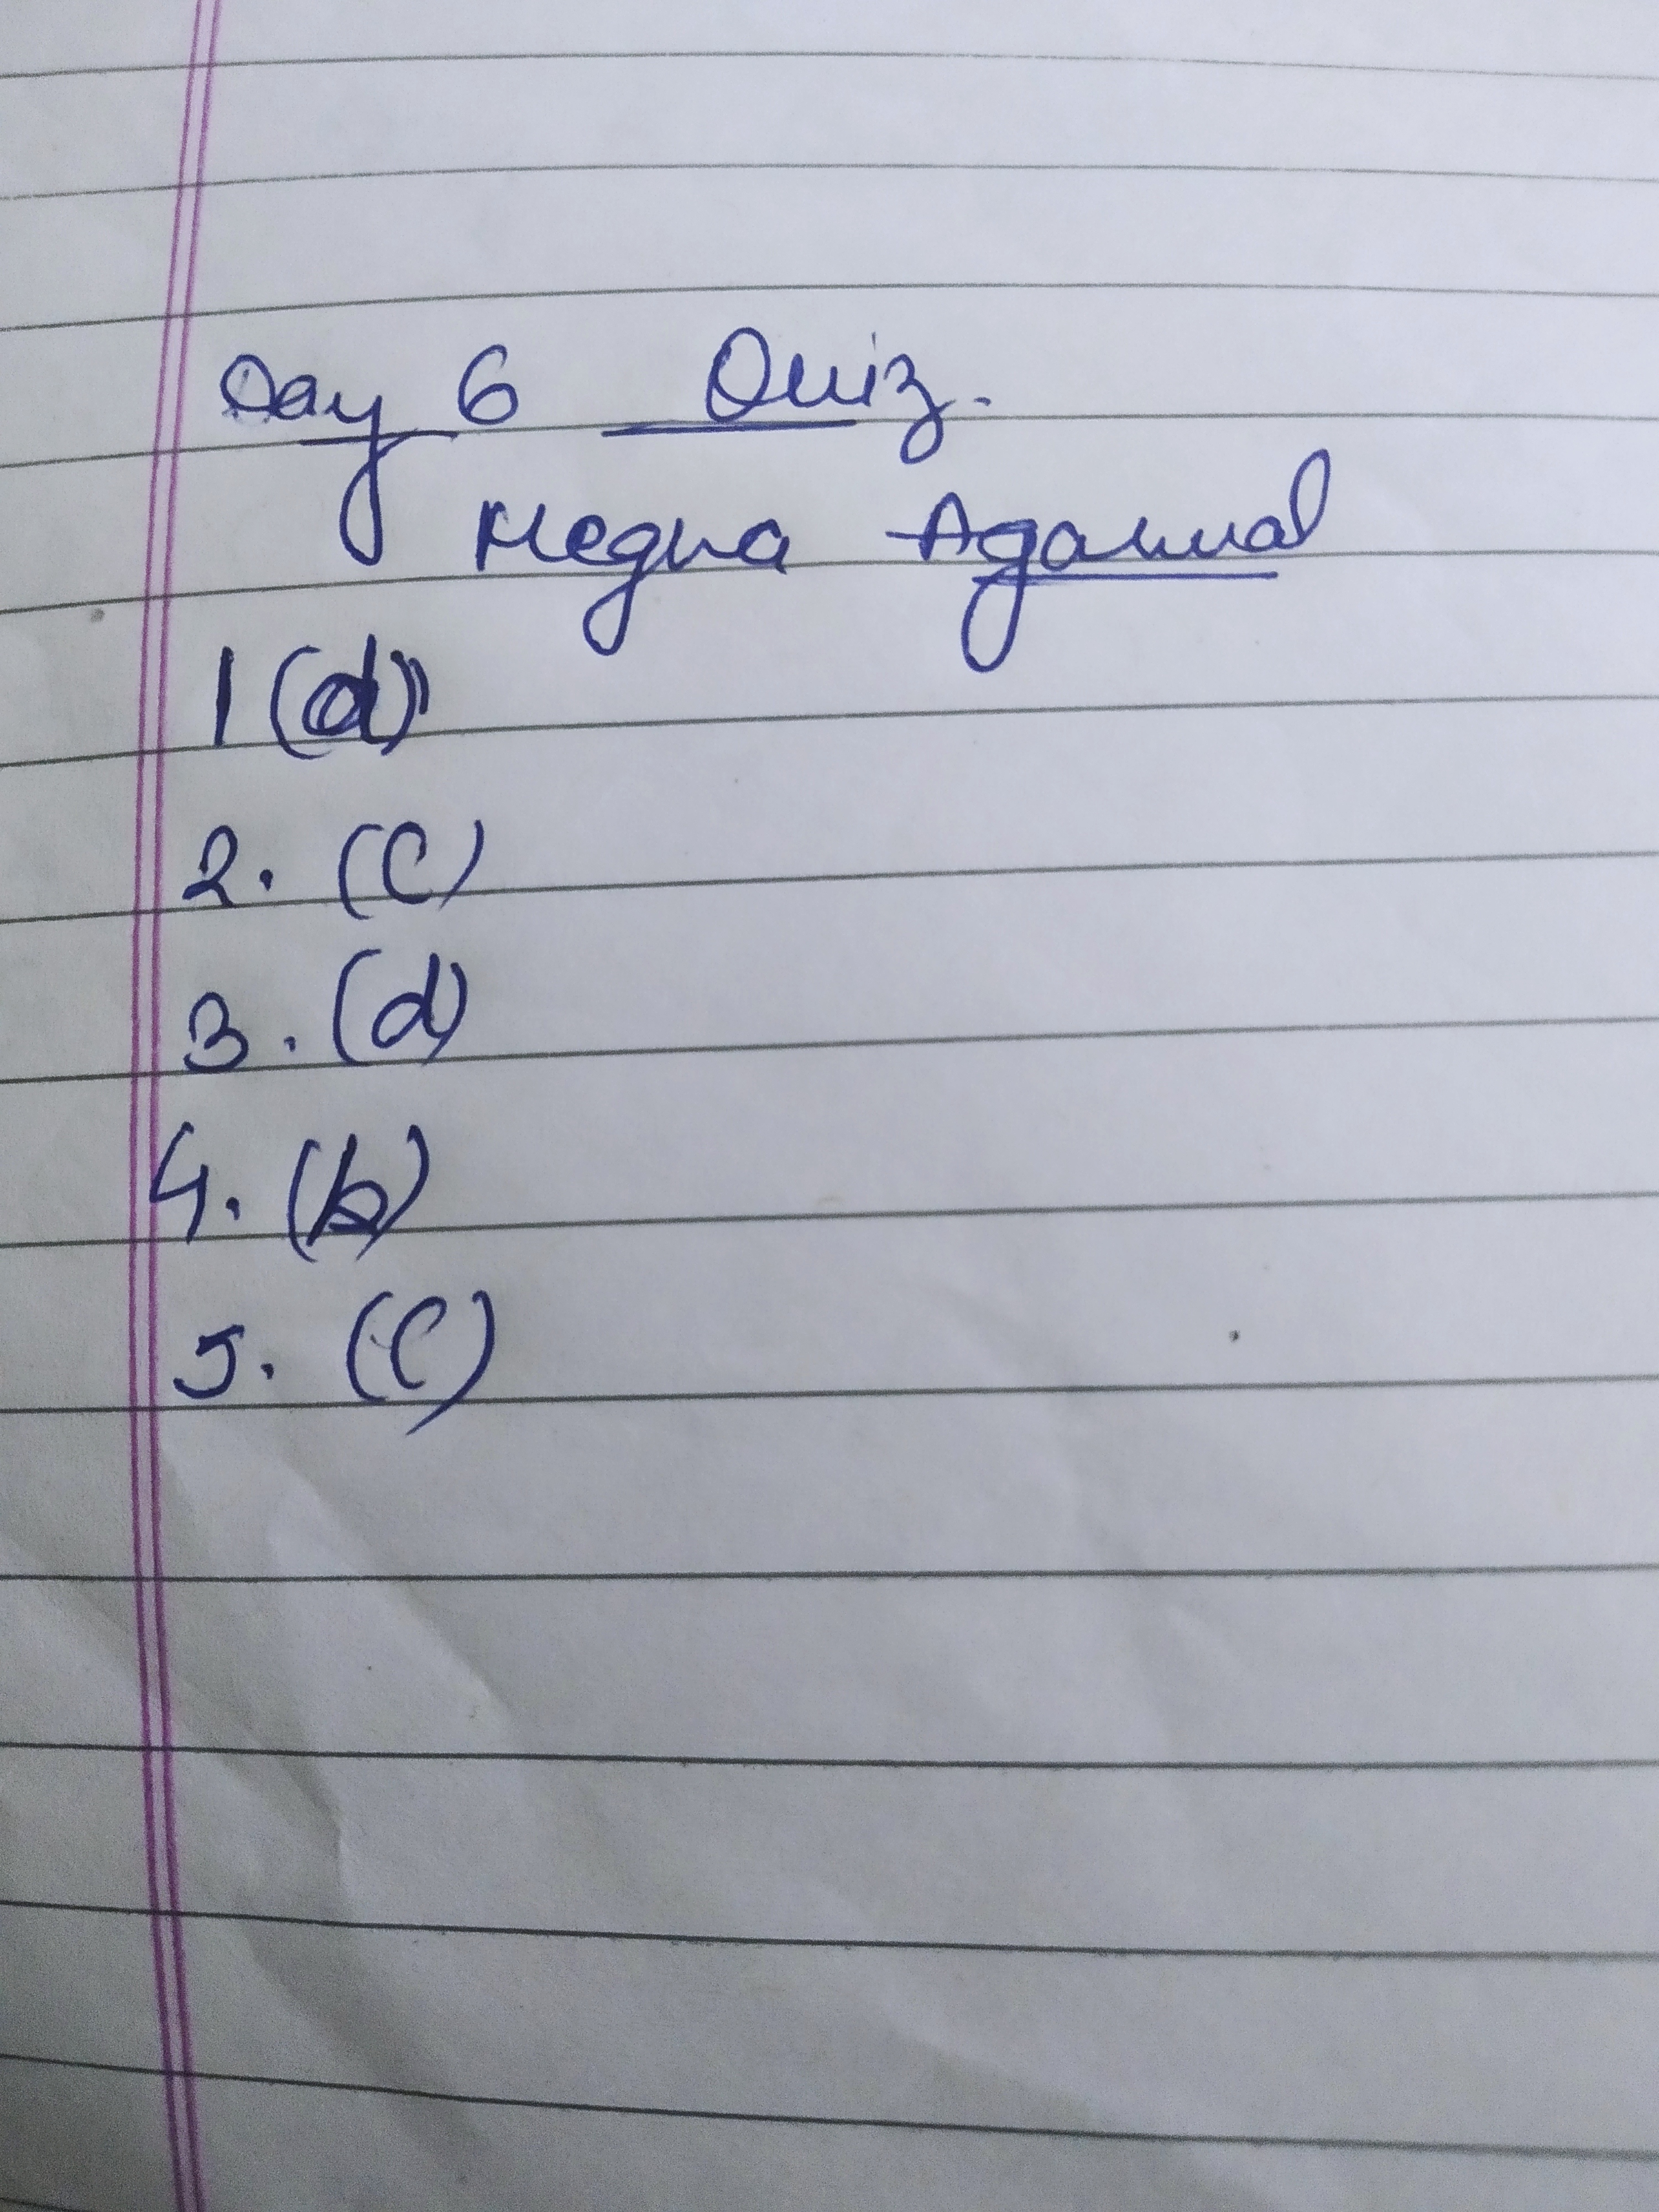 Day 6 Quiz.
Megna Agarwal
1 (d)
2. (C)
3. (d)
4. (b)
5. (C)